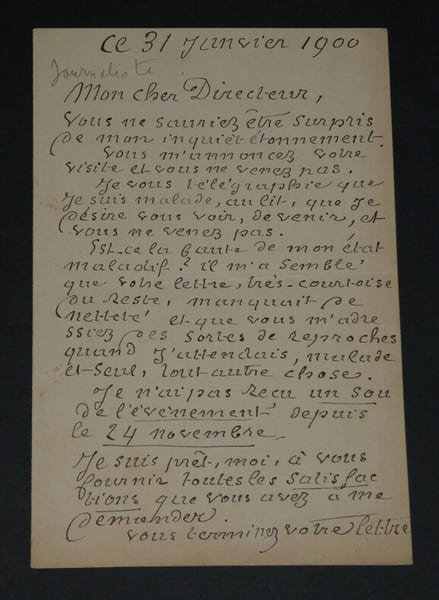 ce 31 Janvier 1900
Journaliste
Mon cher Directeur,
Vous ne sauriez être surpris
de mon inquiét étonnement.
Vous m'annoncez votre
visite et vous ne venez pas.
Je vous télégraphie que
je suis malade, au lit, que je
désire vous voir, de venir, et
vous ne venez pas.
Est-ce la faute de mon état
maladif ? il m'a semblé
que votre lettre, très-courtoise
du reste, manquait de
netteté et que vous m'adre
ssiez des sortes de reproches
quand j'attendais, malade
et seul, tout autre chose.
Je n'ai pas reçu un sou
de l'événement depuis
le 24 novembre.
Je suis prêt, moi, à vous
fournir toutes les satisfac
tions que vous avez à me
demander.
vous terminez votre lettre